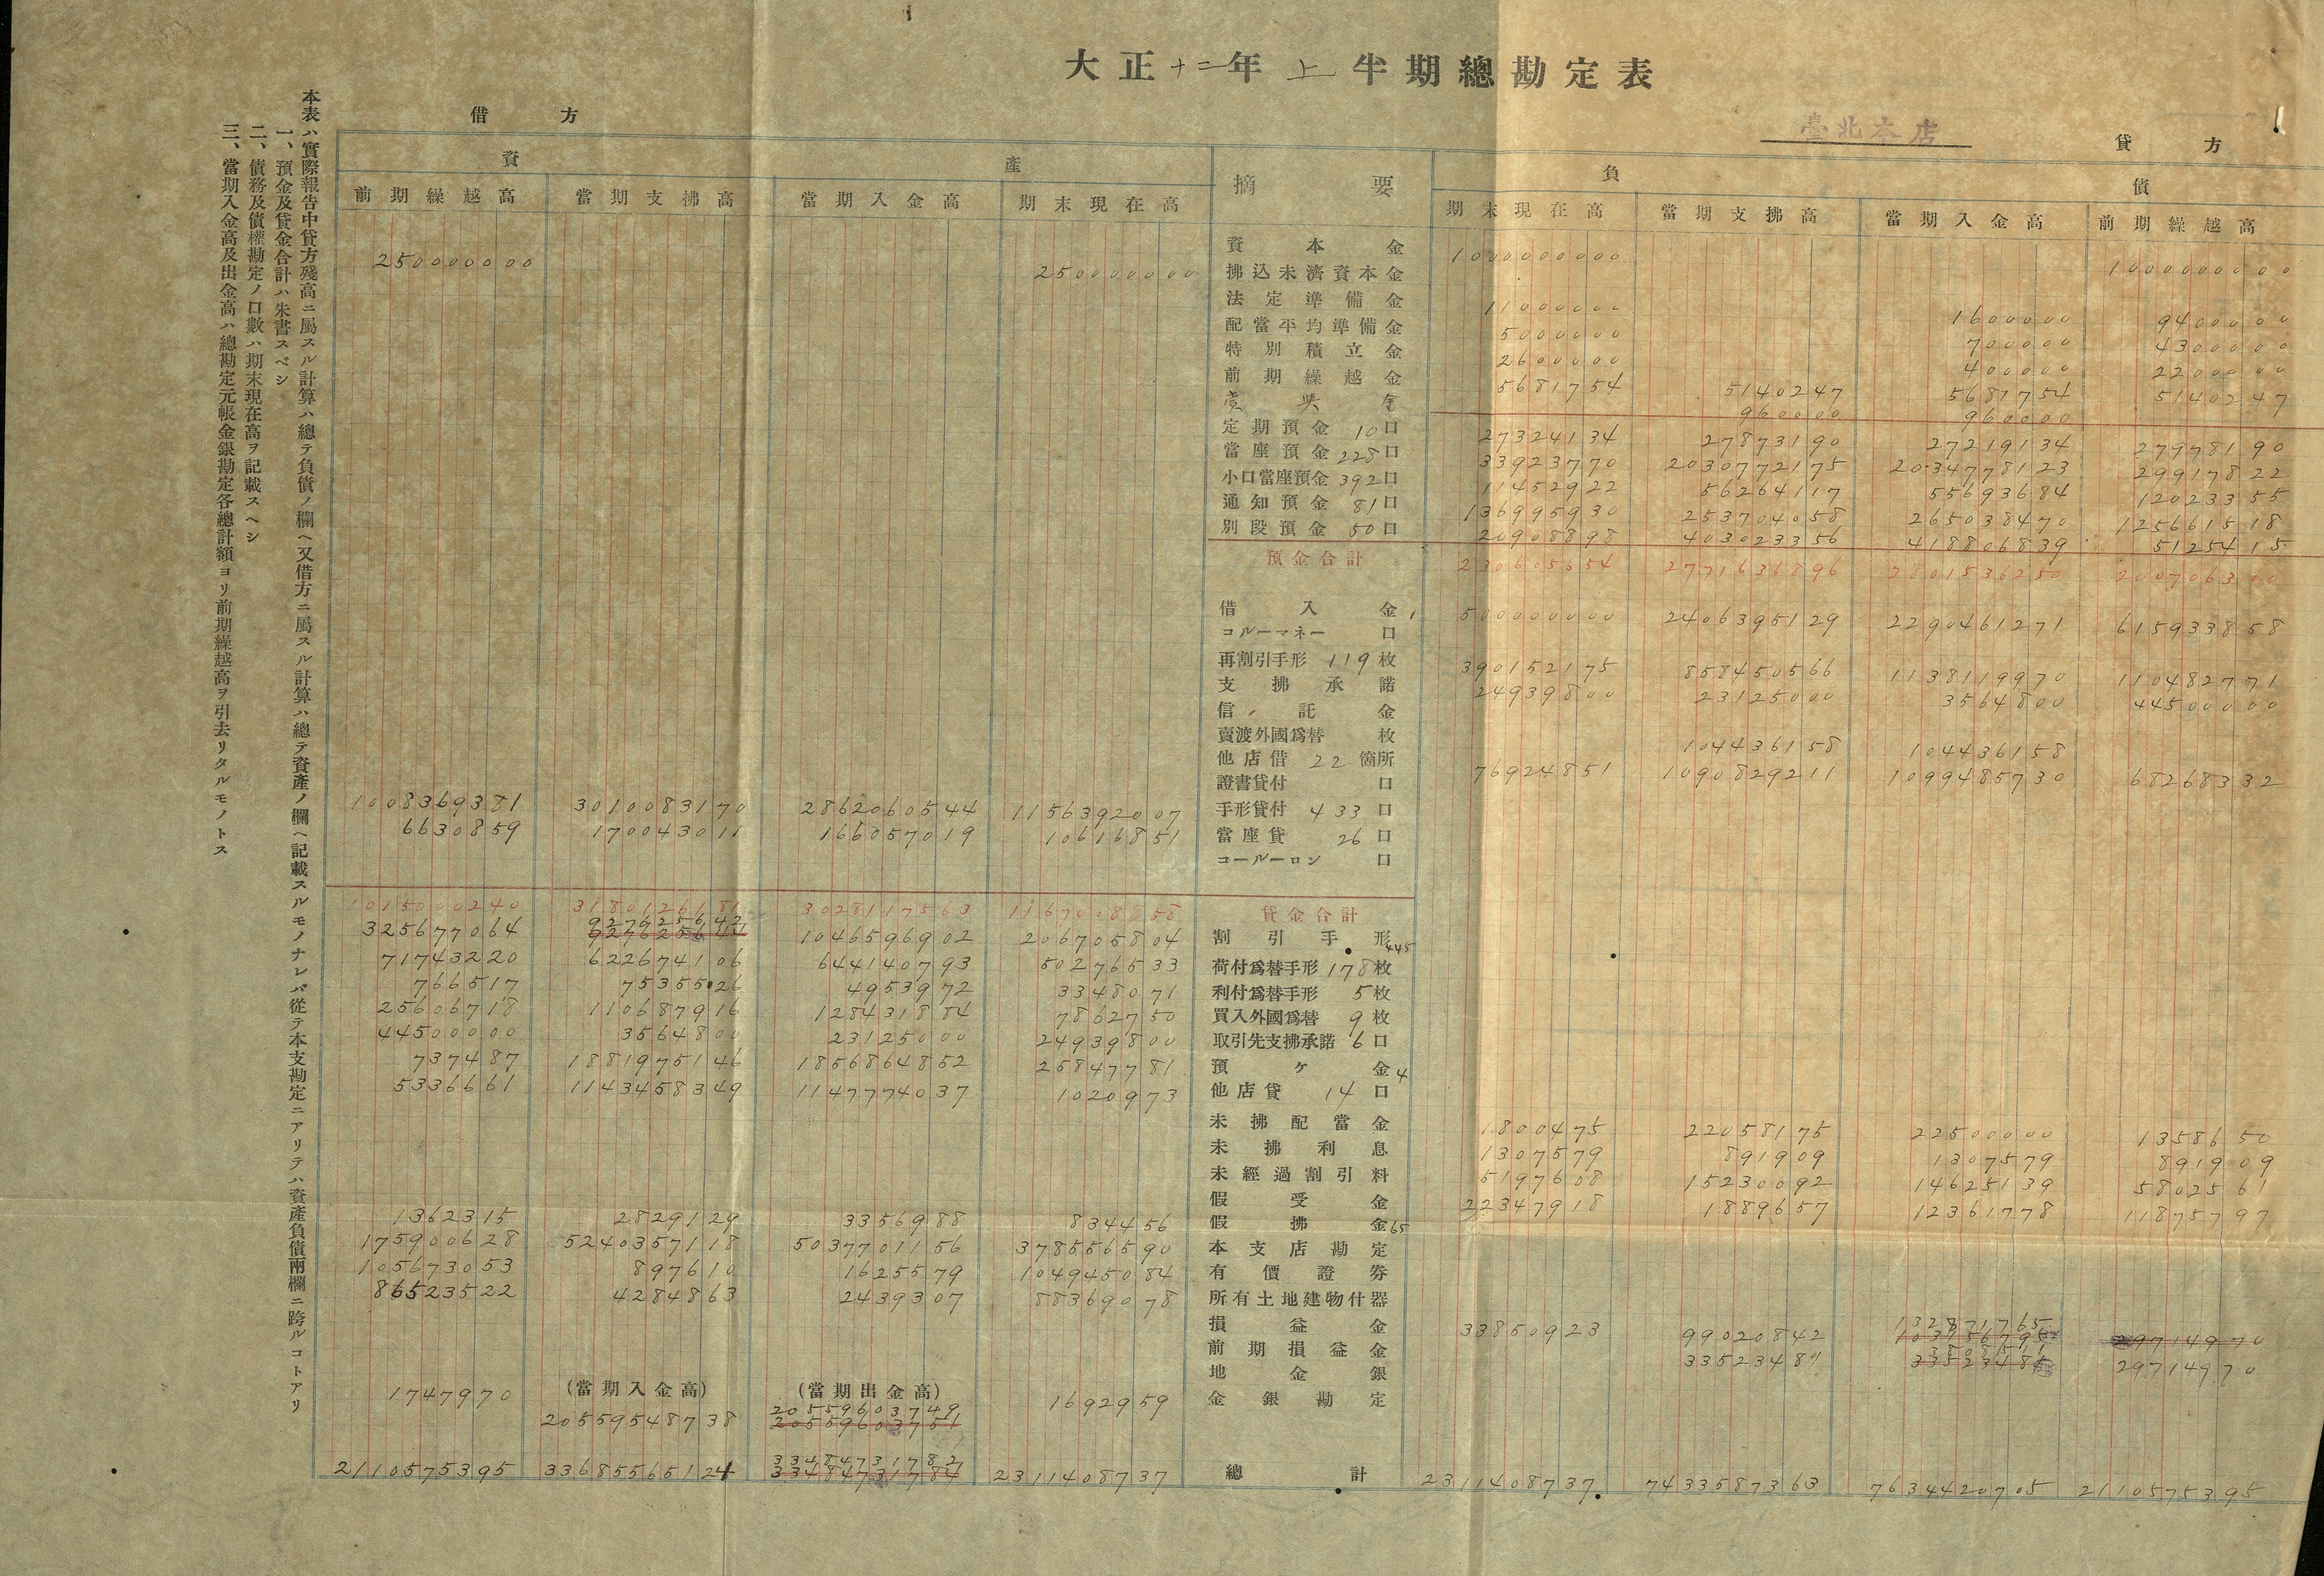 大正十二年上半期總勘定表
臺北本店
借方
貸方
資產
摘要
負債
前期繰越高 當期支拂高 當期入金高 期末現在高 期末現在高 當期支拂高 當期入金高 前期繰越高
資本金 1000000000 1000000000
250000000 250000000 拂込未濟資本金
法定準備金 11000000 1600000 9400000
配當平均準備金 5000000 700000 4300000
特別積立金 2600000 400000 2200000
前期繰越金 5681754 5140247 5681754 5140247
金 960000 960000
定期預金 10口 27324134 27873190 27219134 27978190
當座預金 228口 33923770 2030772175 2034778123 29917822
小口當座預金 392口 11452922 56264117 55693684 12023355
通知預金 81口 136995930 253704058 265038470 125661518
別段預金 50口 20908898 403023356 418806839 5125415
預金合計 230605654 2771636896 2801536250 200706300
借入金 1 500000000 2406395129 2290461271 615933858
コルーマネー 口
再割引手形 119枚 390152175 858450566 1138119970 110482771
支拂承諾 24939800 23125000 3564800 44500000
信託金
賣渡外國爲替 枚 104436158 104436158
他店借 22箇所 76924851 1090829211 1099485730 68268332
證書貸付 口
1008369381 3010083170 2862060544 1156392007 手形貸付 433口
6630859 170043011 166057019 10616851 當座貸 26口
コールーロン 口
1015000240 3180126181 3028117563 1167008858 貸金合計
325677064 927625642 1046596902 206705804 割引手形 445
71743220 622674106 644140793 50276533 荷付爲替手形 178枚
766517 7535526 4953972 3348071 利付爲替手形 5枚
25606718 110687916 128431884 7862750 買入外國爲替 9枚
44500000 3564800 23125000 24939800 取引先支拂承諾 6口
737487 1881975146 1856864852 25847781 預ヶ金 4
5336661 1143458349 1147774037 1020973 他店貸 14口
未拂配當金 1800475 22058175 22500000 1358650
未拂利息 1307579 891909 1307579 891909
未經過割引料 5197608 15230092 14625139 5802561
假受金 22347918 1889657 12361778 11875797
1362315 2829129 3356988 834456 假拂金 65
175900628 5240357118 5037701156 378556590 本支店勘定
105673053 897610 1625579 104945084 有價證劵
86523522 4284863 2439307 88369078 所有土地建物什器
損益金 33850923 99020842 132871765 29714970
前期損益金 33523481 29714970
地金銀
(當期入金高) (當期出金高)
1747970 20559548738 20559603749 1692959 金銀勘定
2110575395 33685565124 33484731782 2311408737 總計 2311408737 7433587363 7634420705 2110575395
本表ハ實際報告中貸方殘高ニ屬スル計算ハ總テ負債ノ欄ヘ又借方ニ屬スル計算ハ總テ資產ノ欄ヘ記載スルモノナレバ從テ本支勘定ニアリテハ資產負債兩欄ニ跨ルコトアリ
一、預金及貸金合計ハ朱書スベシ
二、債務及債權勘定ノ口數ハ期末現在高ヲ記載スヘシ
三、當期入金高及出金高ハ總勘定元帳金銀勘定各總計額ヨリ前期繰越高ヲ引去リタルモノトス